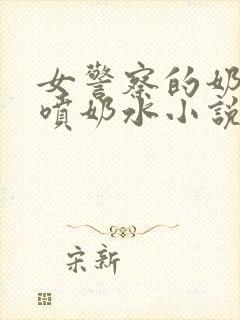 女警察的奶
喷奶水小説
宋新